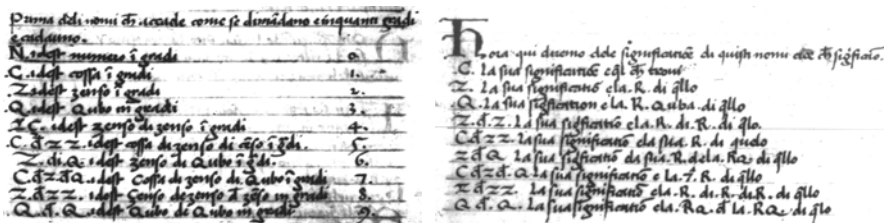 Prima deli nomi ch accade come se dimãdano e inquanti gradi
e cadauno.
N. idest numero ĩ gradi 0.
.C. idest cossa ĩ gradi 1.
Z. idest zenso ĩ gradi 2.
.Q. idest Qubo in gradi 3.
Z.Z. idest zenso di zenso ĩ gradi 4.
.C. d Z Z. idest cossa di zenso di ĩ gdi. 5.
Z. di. Q. idest zenso de Qubo ĩ gdi. 6.
C d z d Q. idest Cossa di zenso di Qubo ĩ gradi 7.
Z. d z z. idest Censo de zenso d zẽso in gradi 8.
Q. d. Q. idest Qubo de Qubo in gradi. 9.
hora qui diremo dele significatiõe di questi nomi
.C. La sua significatiõe
Z. La sua significatiõ e la .R. di qllo
.Q. La sua signification e la .R. Quba. di qllo
Z. d. Z. La sua significatio e la .R. di .R. di qllo.
C d z z. La sua significatio .R. di
Z d Q. La sua significatio .R. dela. RQ. di qllo
C d z d. Q La sua significatio e La .R. di qllo
Z d z z. La sua significatio e la .R. di .R. di .R. di qllo
Q. d. Q. La sua significatio e la .RQ. d la .RQ. di qllo